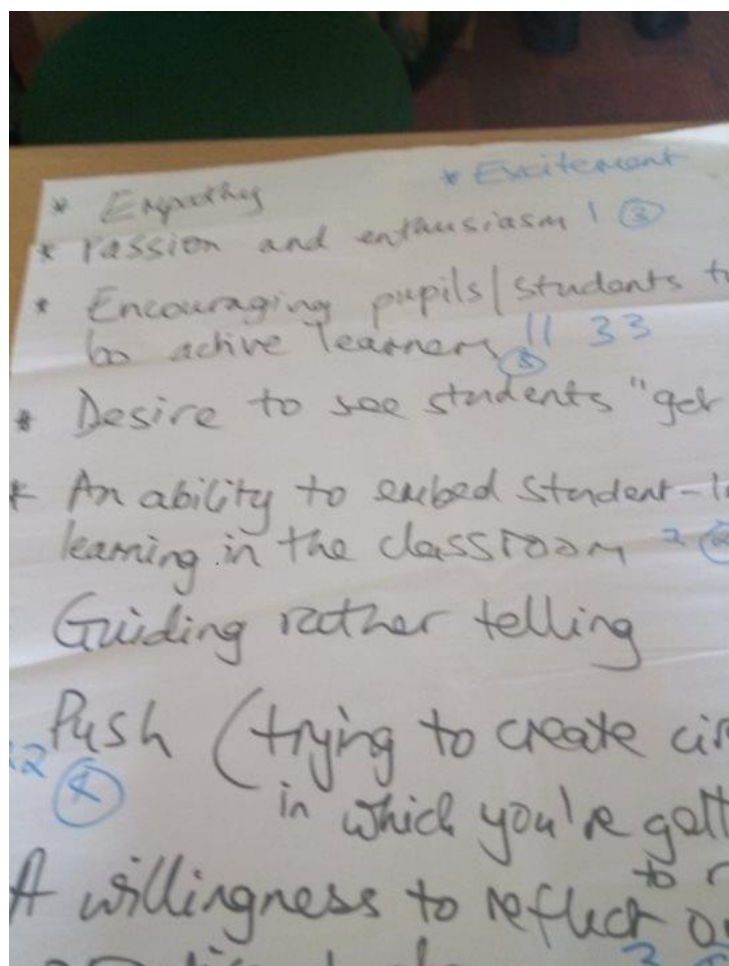 * Empathy * Excitement
* Passion and enthusiasm 1 ③
* Encouraging pupils/students
be active learners 11 33
* Desire to see students "get
* An ability to embed student-
learning in the classroom 2
Guiding rather telling
Push (trying to create
in which you're
to
A willingness to reflect
3